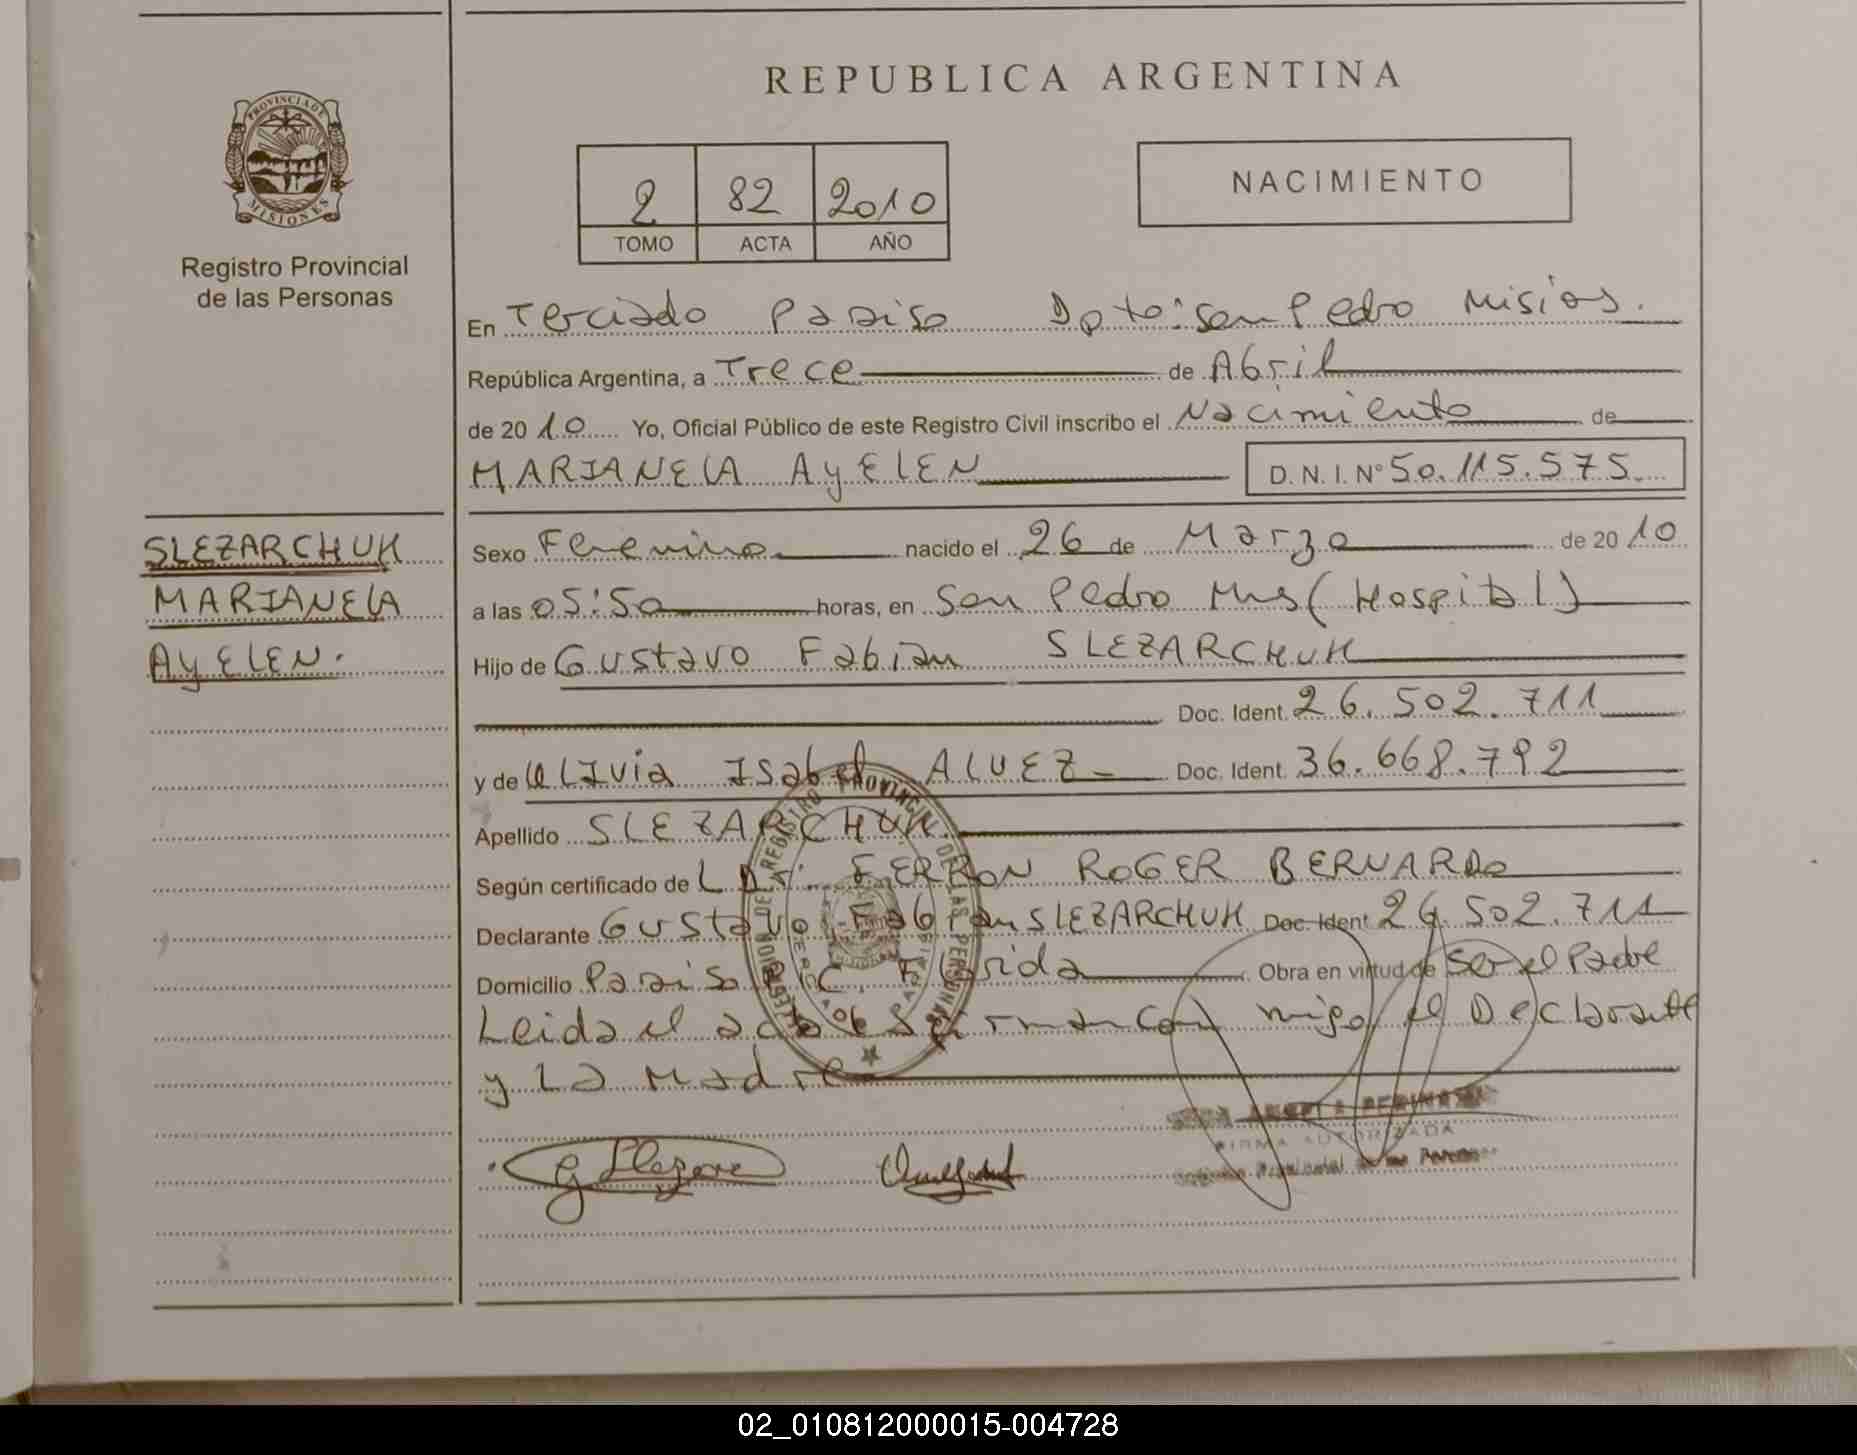 REPUBLICA ARGENTINA
PROVINCIA DE MISIONES
Registro Provincial
de las Personas
2 82 2010
TOMO ACTA AÑO
NACIMIENTO
En Terciado Paraiso Dpto: San Pedro Misios.
República Argentina, a Trece de Abril
de 2010 Yo, Oficial Público de este Registro Civil inscribo el Nacimiento de
MARIANELA AyELEN D.N.I. Nº 50.115.575
SLEZARCHUK
MARIANELA
AyELEN.
Sexo Femenino nacido el 26 de Marzo de 2010
a las 05:50 horas, en San Pedro Mns (Hospital)
Hijo de Gustavo Fabian SLEZARCHUK
Doc. Ident. 26.502.711
y de OLIVia Isabel ALVEZ Doc. Ident. 36.668.792
Apellido SLEZARCHUK.
Según certificado de L Dr. FERRON ROGER BERNARDO
Declarante Gustavo Fabian SLEZARCHUK Doc. Ident. 26.502.711
Domicilio Paraiso Pic. Florida Obra en virtud de ser el Padre
Leida el acta la firman con migo el Declarante
y La Madre
FIRMA AUTORIZADA
02_010812000015-004728